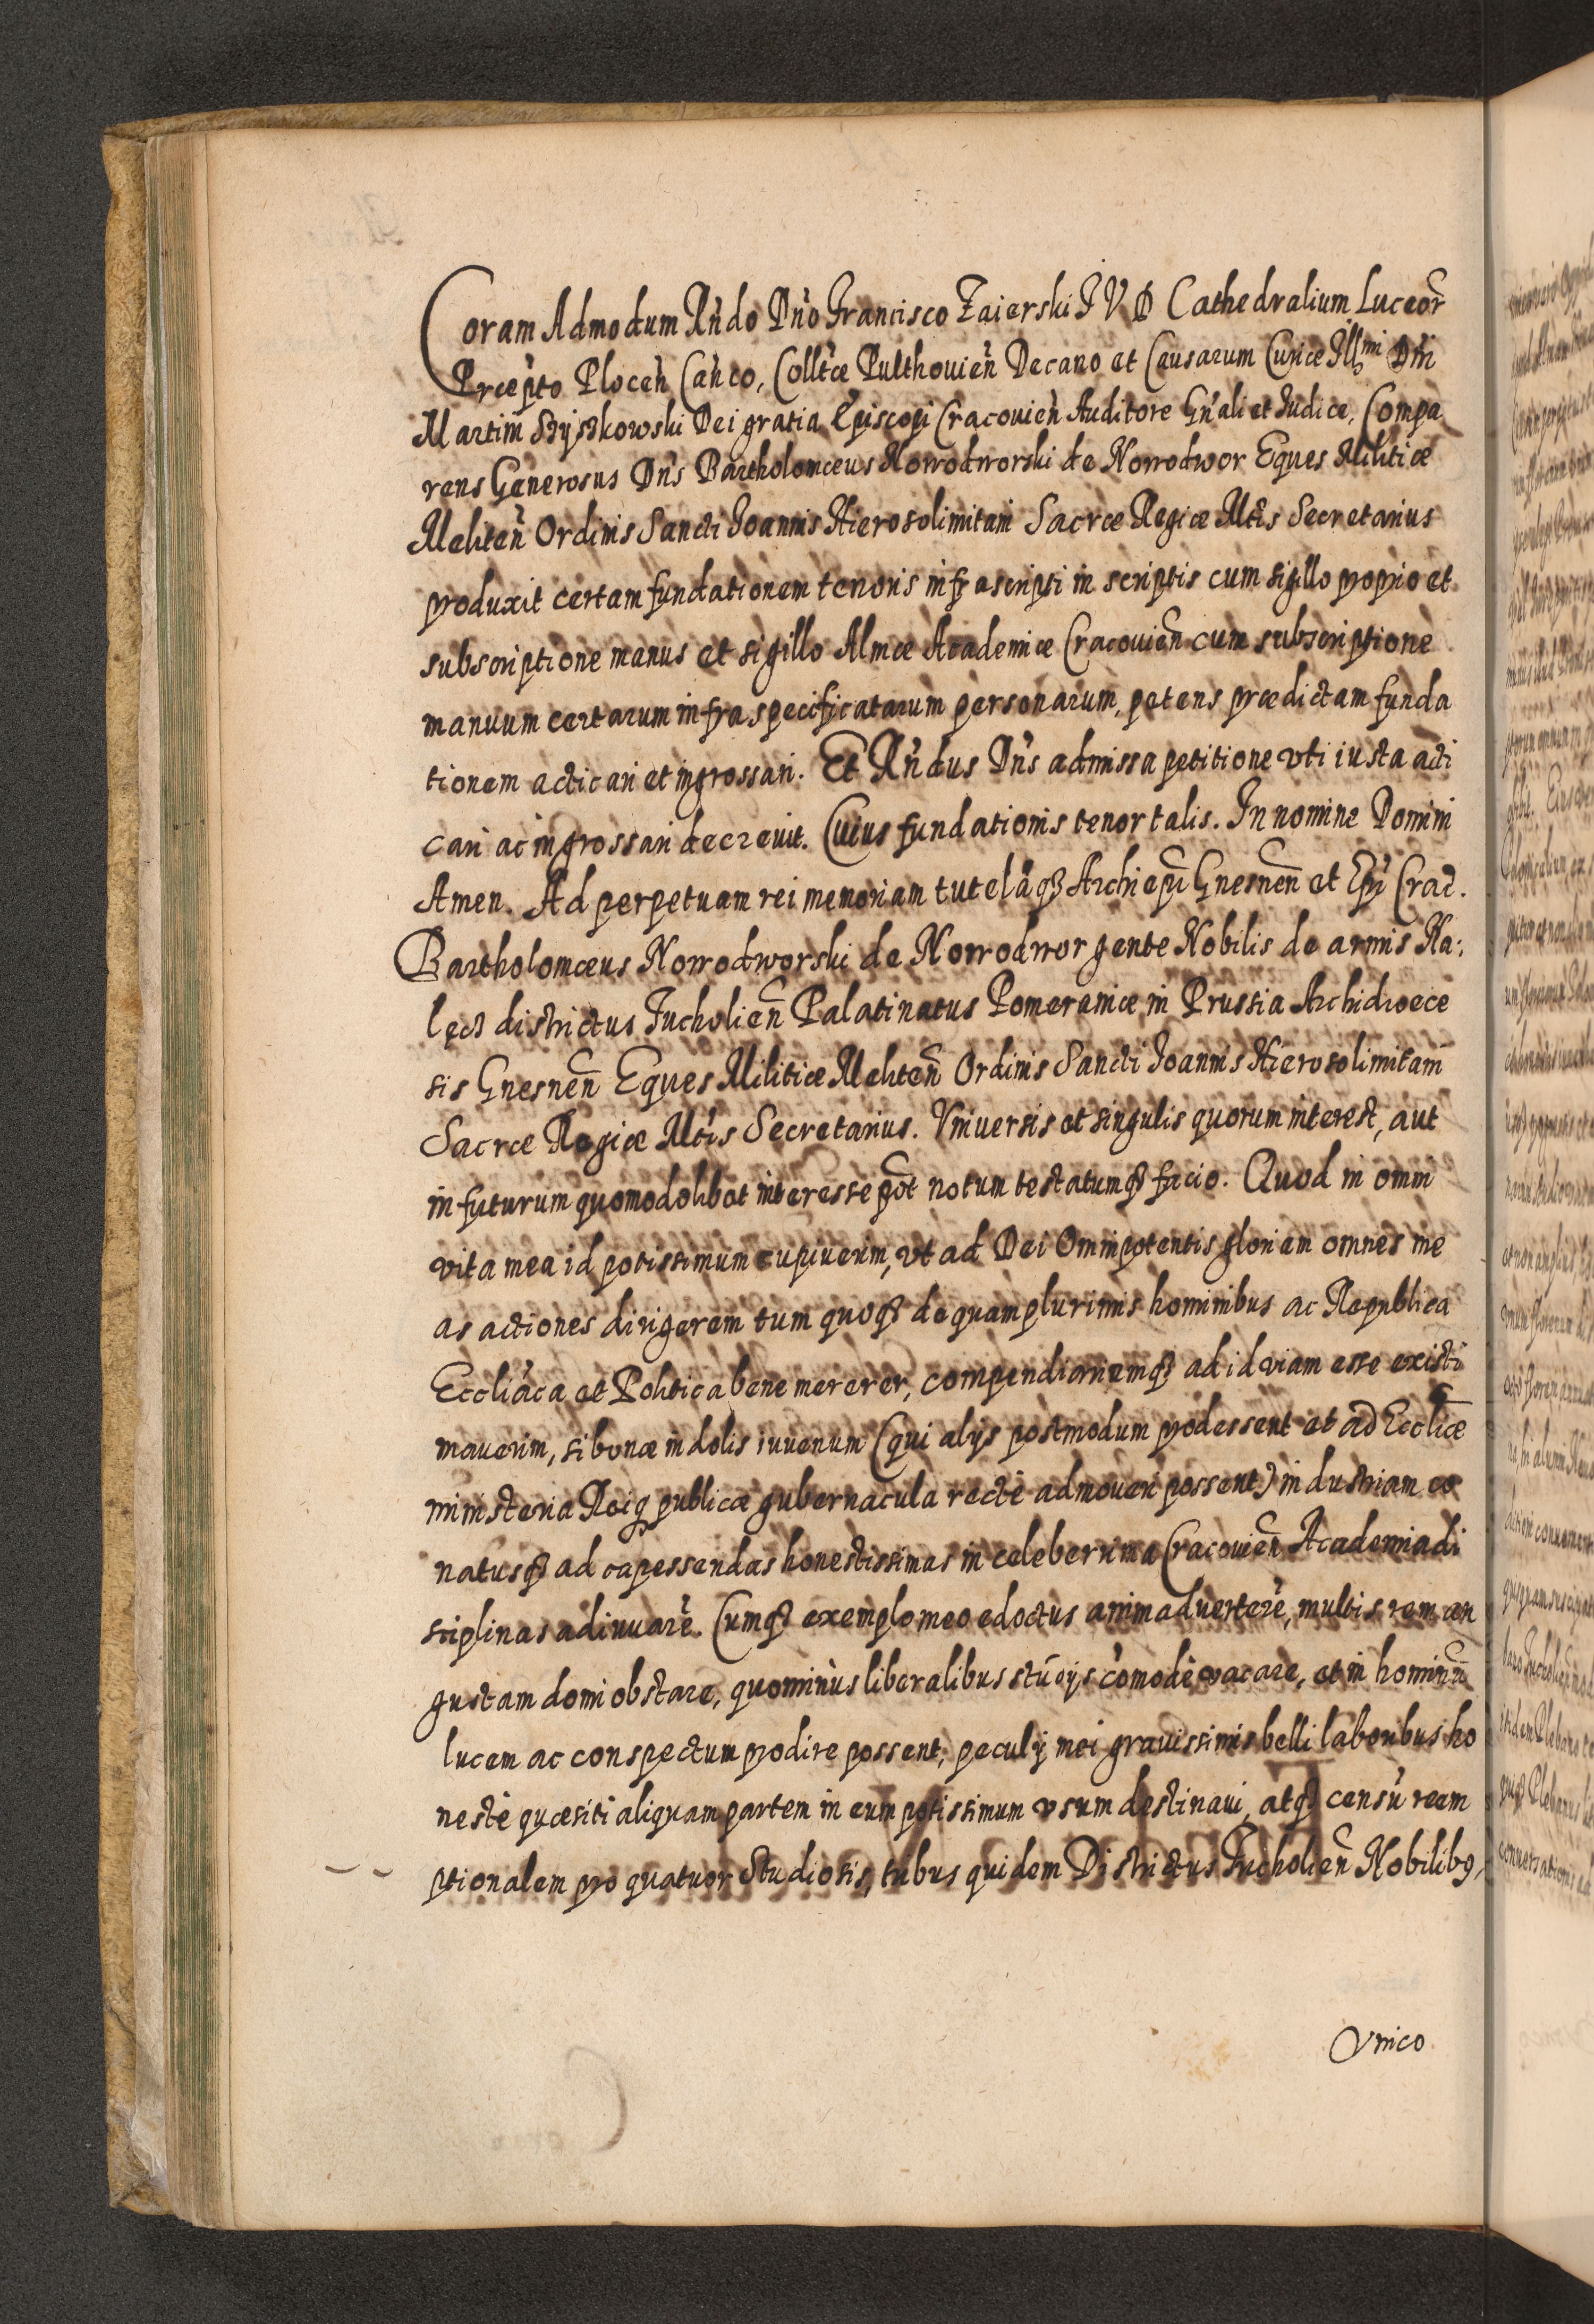 Coram Admodum Rńdo Dńo Francisco Zaierski I V D Cathedralium Luceor̃
Præpto Plocen̄ Cańco, Colltæ Pulthouien̄ Decano et Causarum Curiæ Illmi Dni
Martini Szyszkowski Dei gratia Episcopi Cracouien̄ Auditore Gńali et Iudice, Compa
rens Generosus Dńs Bartholomæus Nowodworski de Nowodwor Eques Militiæ
Meliten̄ Ordinis Sancti Ioannis Hierosolimitani Sacræ Regiæ Mtis Secretarius
produxit certam fundationem tenoris infrascripti in scriptis cum sigillo proprio et
subscriptione manus et sigillo Almæ Academiæ Cracouien̄ cum subscriptione
manuum certarum infraspecificatarum personarum, petens prædictam funda
tionem acticari et ingrossari. Et Rńdus Dńs admissa petitione vti iusta acti
cari ac ingrossari decreuit. Cuius fundationis tenor talis. In nomine Domini
Amen. Ad perpetuam rei memoriam tutelāq₃ Archiepī Gnesnen̄ et Epī Crac̄.
Bartholomæus Nowodworski de Nowodwor gente Nobilis de armis Na:
lęcz districtus Tucholien̄ Palatinatus Pomeraniæ in Prussia Archidioece
sis Gnesnen̄ Eques Militiæ Meliten̄ Ordinis Sancti Ioannis Hierosolimitani
Sacræ Regiæ Mtis Secretarius. Vniuersis et singulis quorum interest, aut
in futurum quomodolibet interesse po̅t notum testatumq₃ facio. Quod in omni
vita mea id potissimum cupiuerim, vt ad Dei Omnipotentis gloriam omnes me
as actiones dirigerem tum quoq₃ de quamplurimis hominibus ac Republica
Eccliāca et Politica bene mererer, compendiariamq₃ ad id viam esse existi
mauerim, si bonæ indolis iuuenum (qui alijs postmodum prodessent et ad Eccliæ
ministeria Reiq publicæ gubernacula rectè admoueri possent) industriam co
natusq₃ ad capessendas honestissimas in celeberrima Cracouien̄ Academia di
sciplinas adiuuarē. Cumq₃ exemplo meo edoctus animaduerterē, multis rem an
gustam domi obstare, quominùs liberalibus studijs cōmodè vacare, et in hominū
lucem ac conspectum prodire possent, peculij mei grauissimis belli laboribus ho
nestè quæsiti aliquam partem in eum potissimum vsum destinaui, atq₃ censū reem
ptionalem pro quatuor Studiosis, tribus quidem Districtus Tucholien̄ Nobilibq,
Vnico